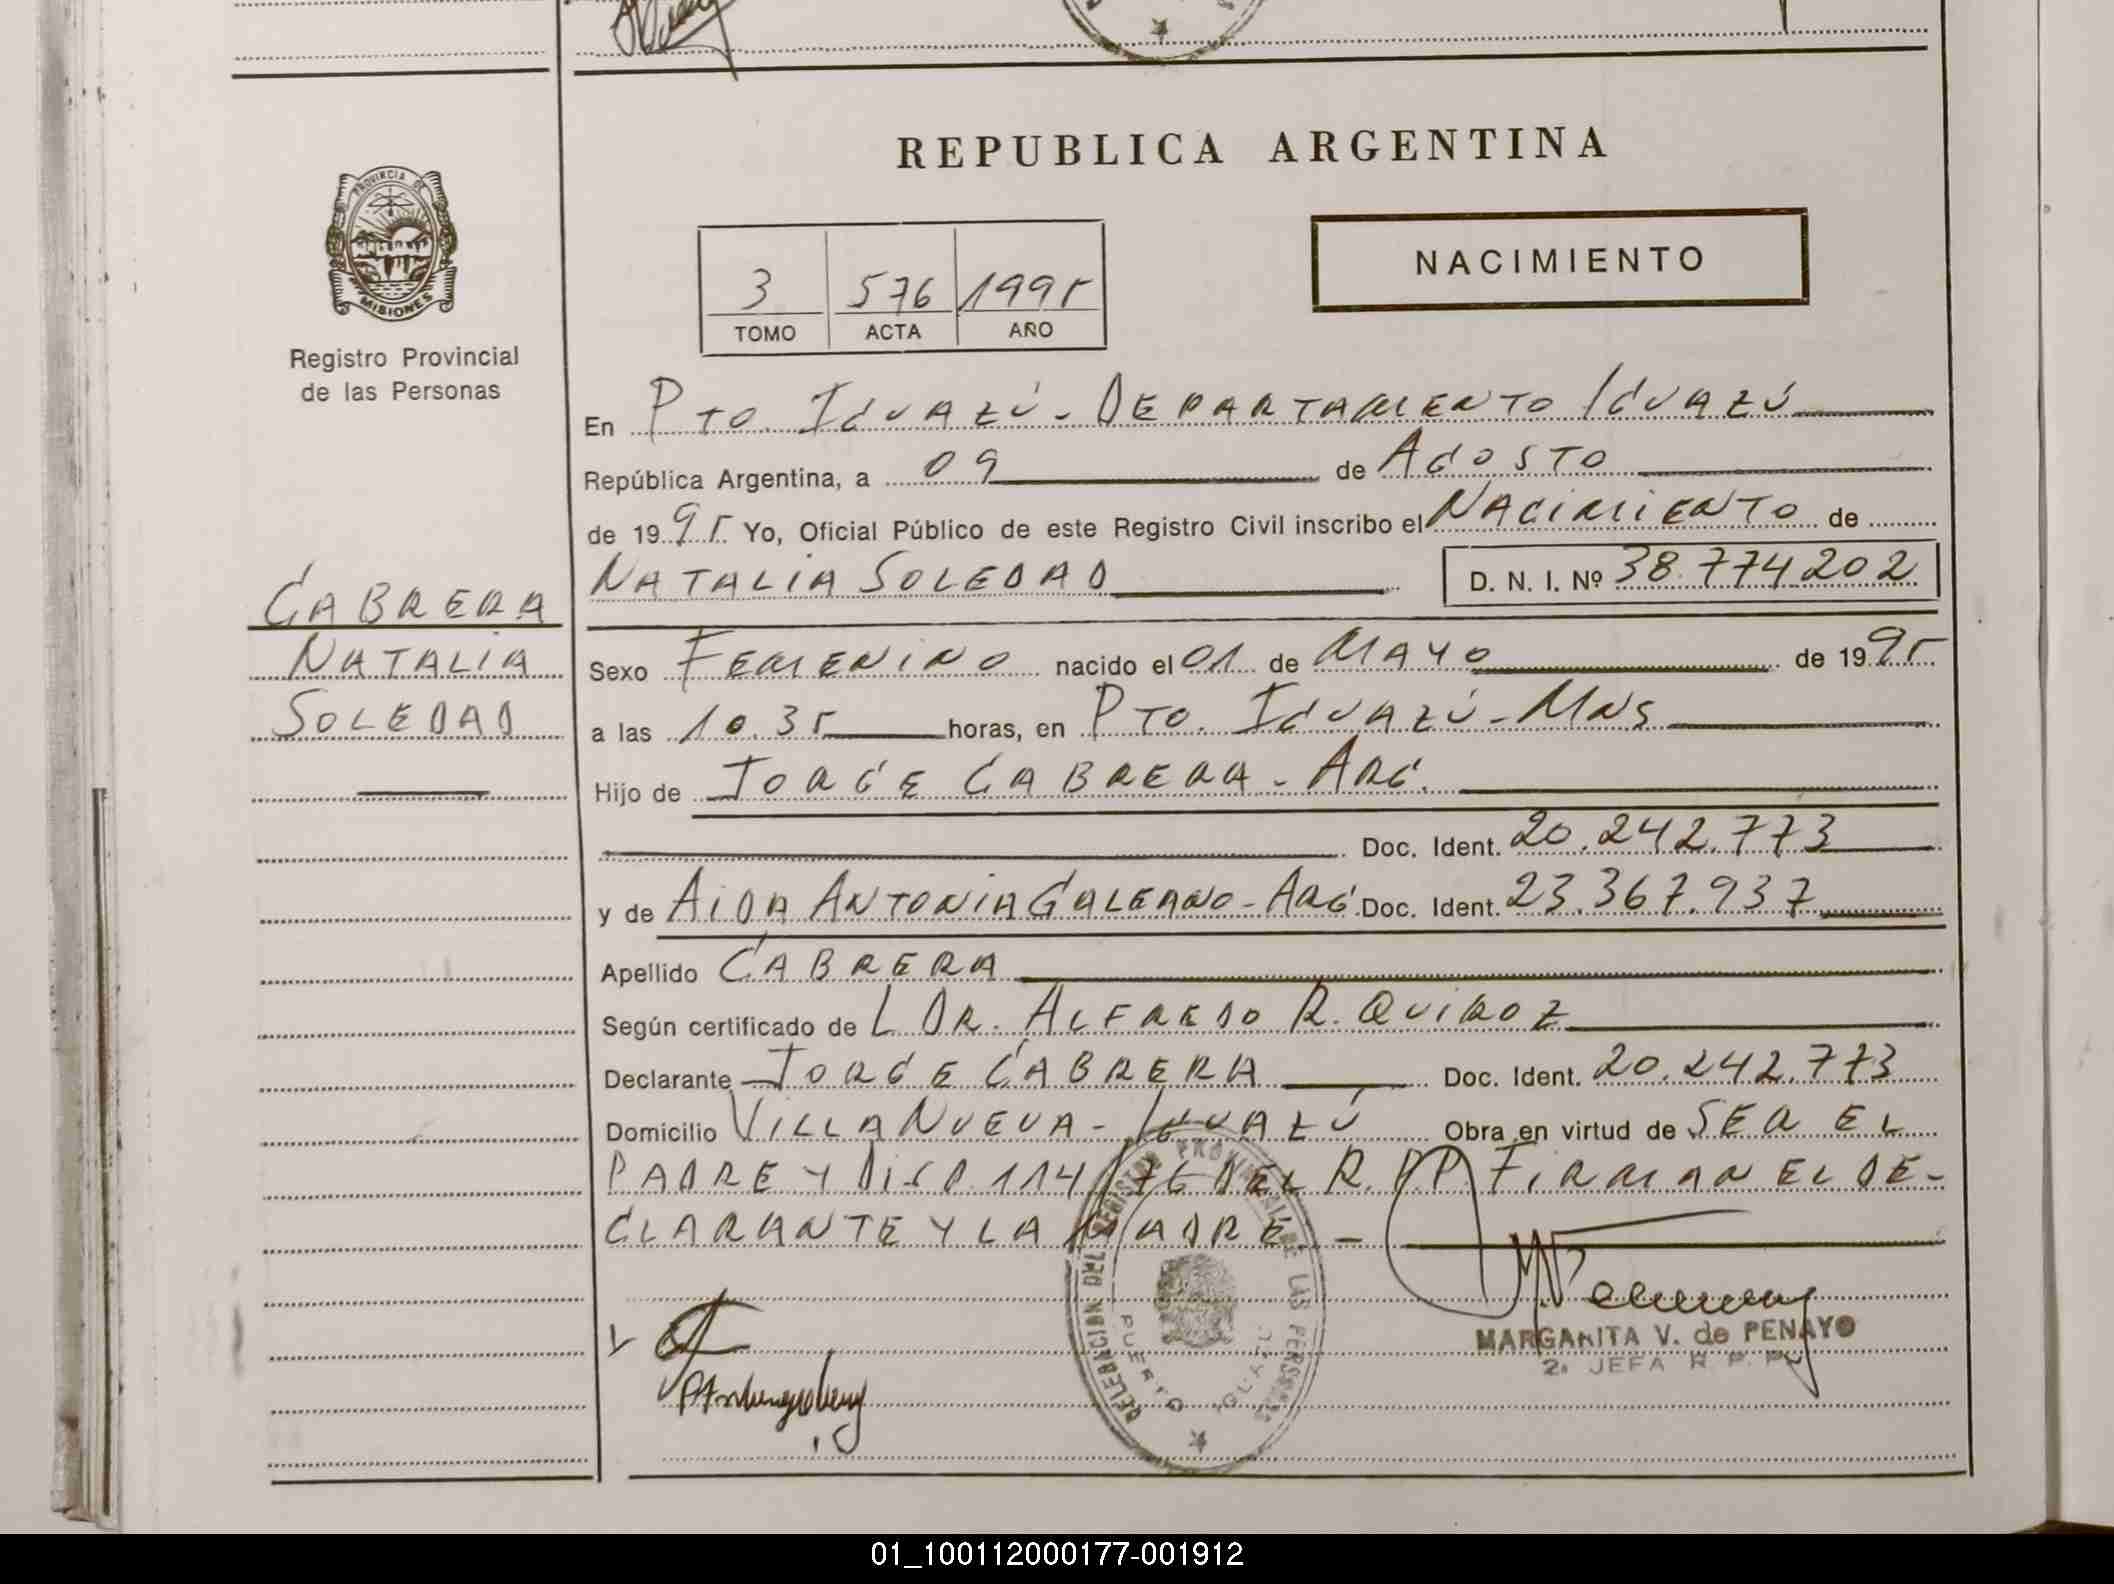 REPUBLICA ARGENTINA
NACIMIENTO
3 576 1995
TOMO ACTA AÑO
PROVINCIA DE
MISIONES
Registro Provincial
de las Personas
CABRERA
NATALIA
SOLEDAD
En PTO. IGUAZÚ - DEPARTAMENTO IGUAZÚ
República Argentina, a 09 de AGOSTO
de 1995 Yo, Oficial Público de este Registro Civil inscribo el NACIMIENTO de
NATALIA SOLEDAD D. N. I. Nº 38.774202
Sexo FEMENINO nacido el 01 de MAYO de 1995
a las 10.35 horas, en PTO. IGUAZÚ - MNS
Hijo de JORGE CABRERA - ARG.
Doc. Ident. 20.242.773
y de AIDA ANTONIA GALEANO - ARG. Doc. Ident. 23.367.937
Apellido CABRERA
Según certificado de L DR. ALFREDO R. QUIROZ
Declarante JORGE CABRERA Doc. Ident. 20.242.773
Domicilio VILLA NUEVA - IGUAZÚ Obra en virtud de SER EL
PADRE Y DISP. 114/76 DEL R.P.P. FIRMAN EL DE-
CLARANTE Y LA MADRE. -
DELEGACION DEL REGISTRO PROVINCIAL DE LAS PERSONAS
PUERTO IGUAZU
MARGARITA V. de PENAYO
2a JEFA R. P. P.
01_100112000177-001912